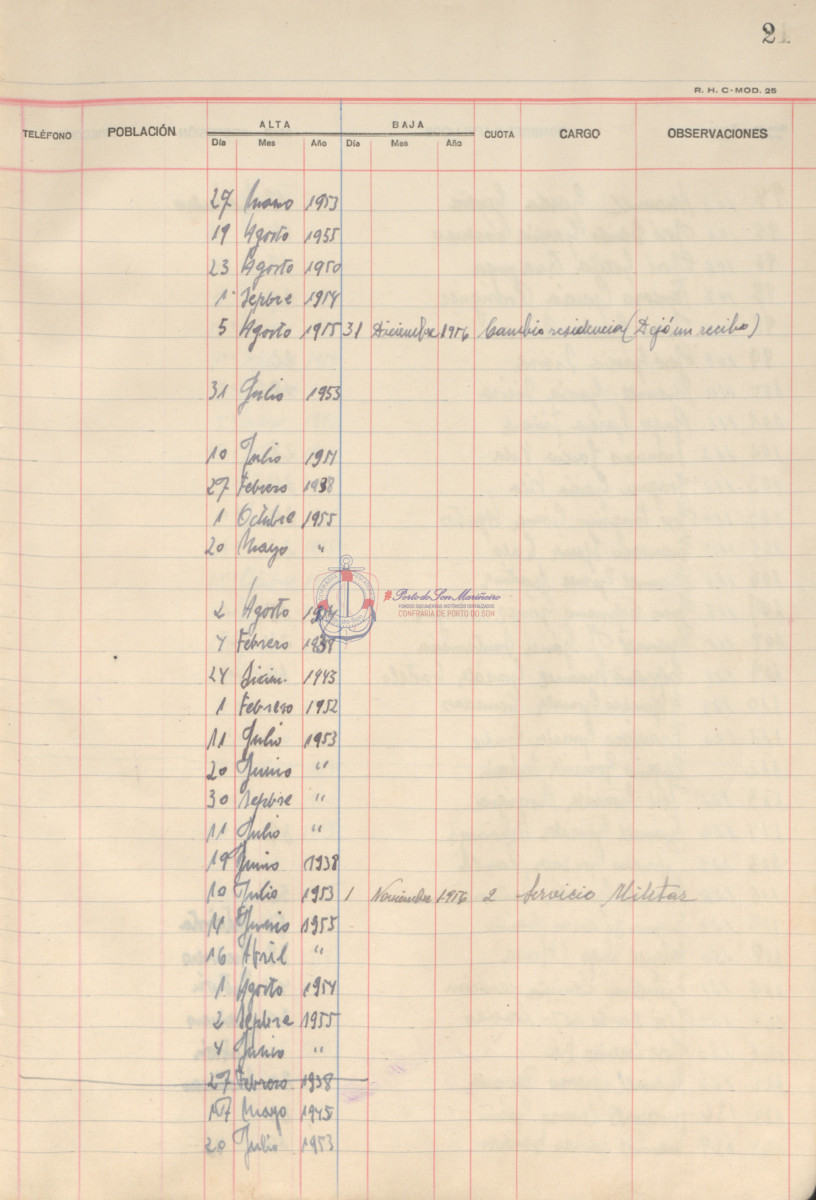 21
R. H. C-MOD. 25
TELÉFONO POBLACIÓN ALTA BAJA CUOTA CARGO OBSERVACIONES
Día Mes Año Día Mes Año
27 Marzo 1953
19 Agosto 1955
23 Agosto 1950
1 Sepbre 1954
5 Agosto 1955 31 Diciembre 1956 Cambio residencia (Dejó un recibo)
31 Julio 1953
10 Julio 1954
27 Febrero 1938
1 Octubre 1955
20 Mayo "
2 Agosto
4 Febrero
24 Dicim. 1943
1 Febrero 1952
11 Julio 1953
20 Junio "
30 Sepbre "
11 Julio "
19 Junio 1938
10 Julio 1953 1 Noviembre 1956 2 Servicio Militar
1955
16 Abril "
1 Agosto 1954
2 Sepbre 1955
4 Junio "
27 Febrero 1938
17 Mayo 1945
20 Julio 1953
#Porto do Son Mariñeiro
FONDOS DOCUMENTAIS HISTÓRICOS DIXITALIZADOS
CONFRARÍA DE PORTO DO SON